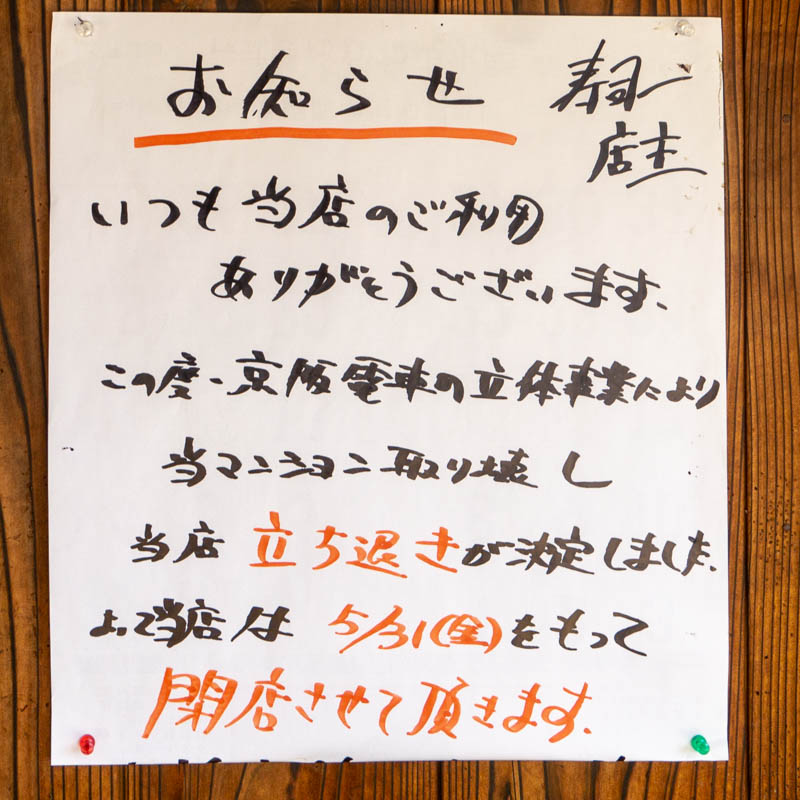 お知らせ
寿司一
店主
いつも当店のご利用
ありがとうございます。
この度、京阪電車の立体事業により
当マンション取り壊し
当店立ち退きが決定しました。
よって当店は 5/31(金)をもって
閉店させて頂きます。